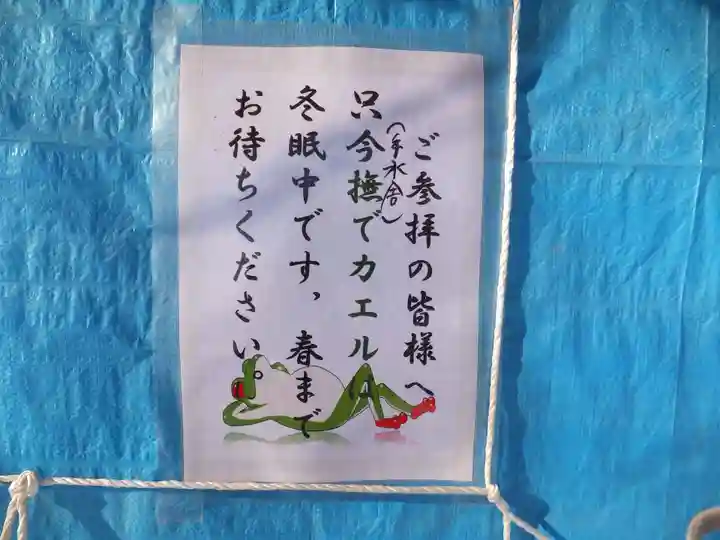 ご参拝の皆様へ
(手水舎)
只今撫でカエルは
冬眠中です，春まで
お待ちください